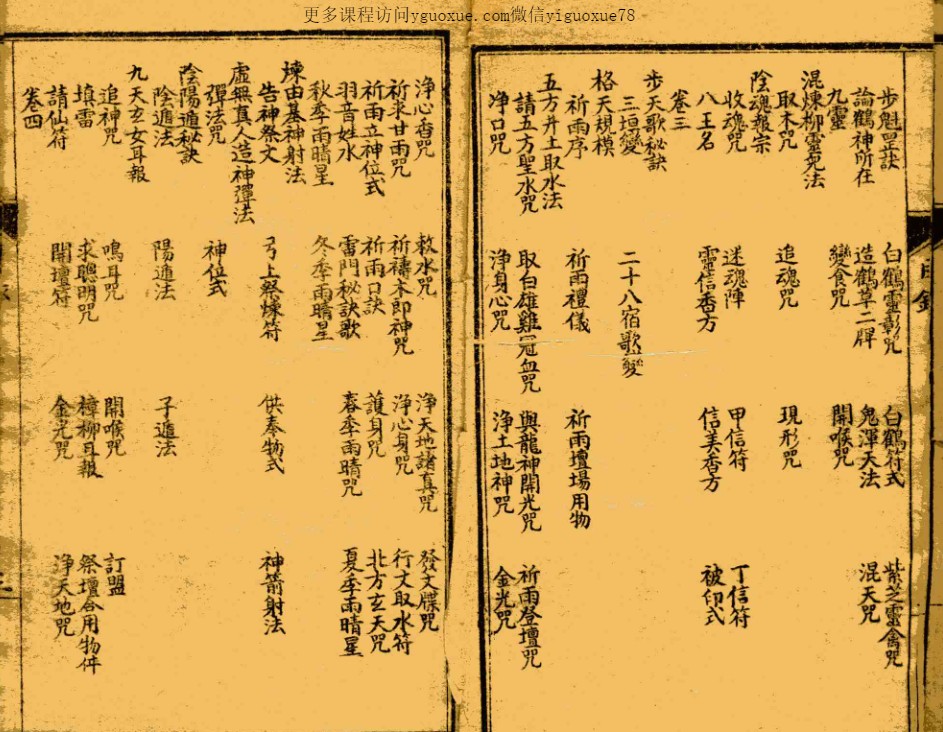 更多课程访问yguoxue.com微信yiguoxue78
步魁罡訣 白鶴靈彰咒 白鶴符式 紫芝靈禽咒
論鶴神所在 造鶴草二牌 鬼渾天法 混天咒
九靈 變食咒 開喉咒
混煉柳靈兒法
取木咒 追魂咒 現形咒
陰魂報宗
收魂咒 迷魂陣 甲信符 丁信符
八王名 靈信香方 信美香方 被印式
卷三
步天歌秘訣
三垣變 二十八宿歌變
格天規模
祈雨序 祈雨禮儀 祈雨壇場用物
五方井土取水法
請五方聖水咒 取白雄雞冠血咒 與龍神開光咒 祈雨登壇咒
净口咒 淨身心咒 淨土地神咒 金光咒
淨心香咒 敕水咒 淨天地諸真咒 發文牒咒
祈求甘雨咒 祈禱木郎神咒 淨心身咒 行文取水符
祈雨立神位式 祈雨口訣 護身咒 北方玄天咒
羽音姓水 雷門秘訣歌 春季雨晴咒 夏季雨晴星
秋季雨晴星 冬季雨晴星
煉由基神射法
告神祭文 弓上祭煉符 供奉物式 神箭射法
虛無真人造神彈法
彈法咒 神位式
陰陽遁秘訣
陰遁法 陽遁法 子遁法
九天玄女耳報
追神咒 鳴耳咒 開喉咒 訂盟
填雷 求聰明咒 樟柳耳報 祭壇合用物件
請仙符 開壇符 金光咒 淨天地咒
卷四